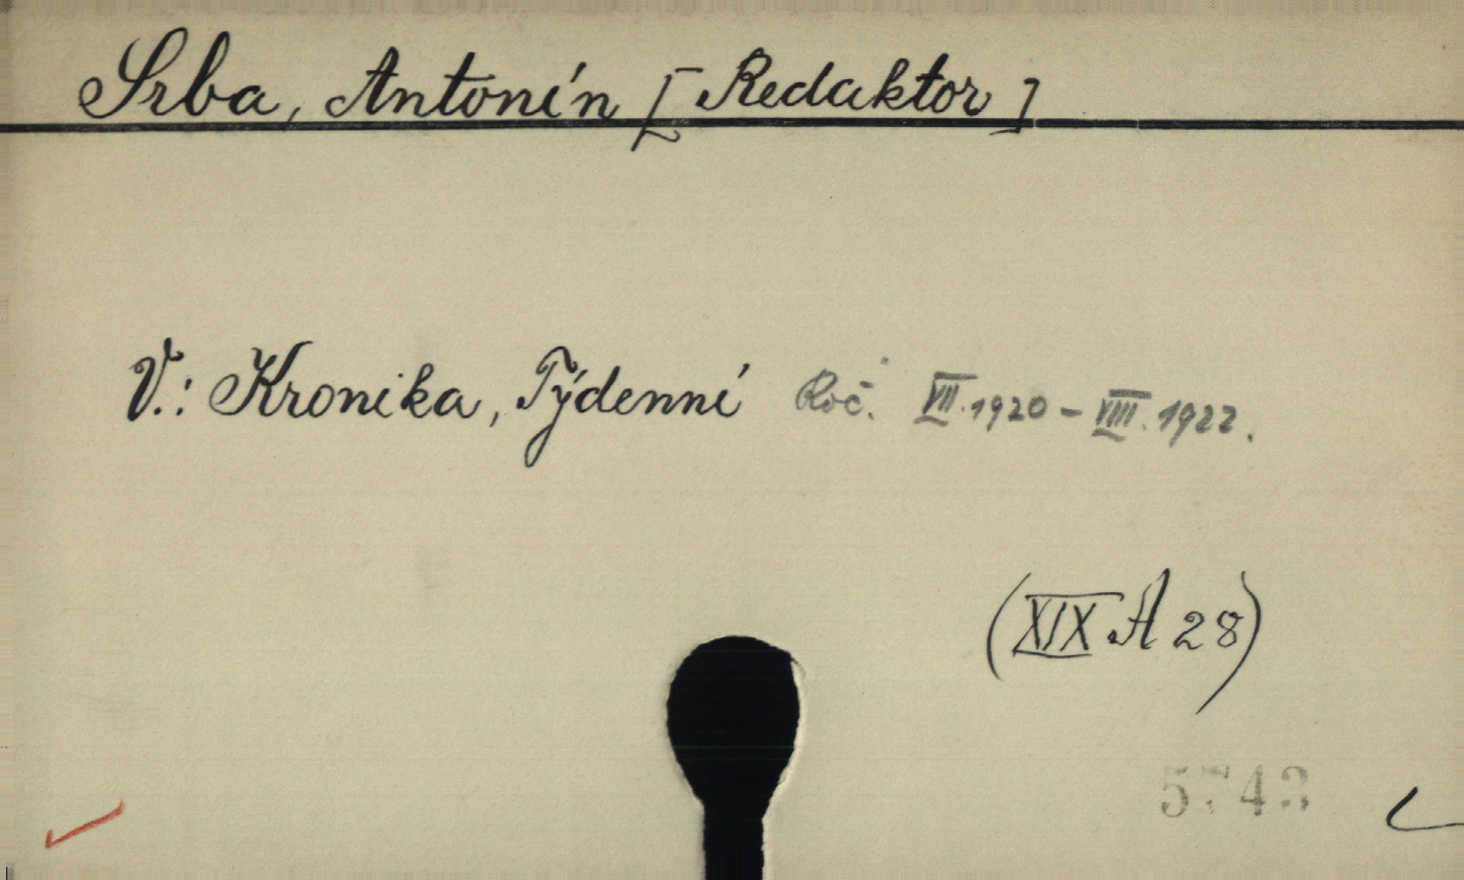 Srba, Antonín [Redaktor]
V.: Kronika, Týdenní Roč. VII. 1920 - VIII. 1922.
(XIX A 28)
5743